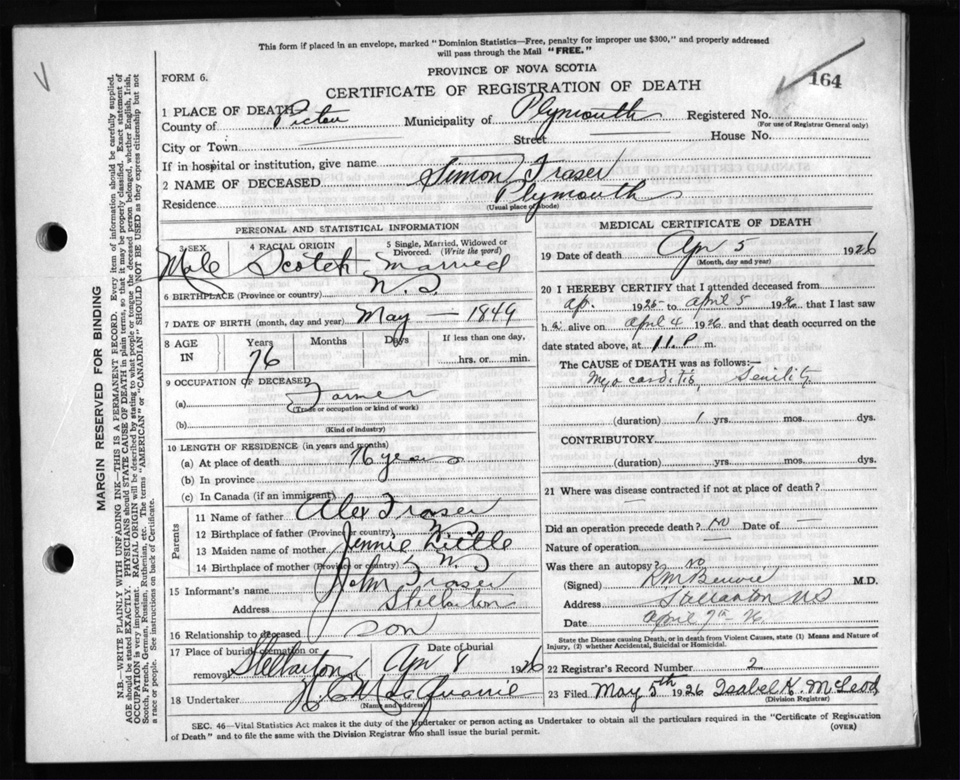 This form if placed in an envelope, marked "Dominion Statistics—Free, penalty for improper use $300," and properly addressed
will pass through the Mail "FREE."
PROVINCE OF NOVA SCOTIA
FORM 6.
CERTIFICATE OF REGISTRATION OF DEATH
164
1 PLACE OF DEATH
County of Pictou Municipality of Plymouth Registered No.
(For use of Registrar General only)
City or Town Street House No.
If in hospital or institution, give name
2 NAME OF DECEASED Simon Fraser
Residence Plymouth
(Usual place of abode)
PERSONAL AND STATISTICAL INFORMATION
3 SEX 4 RACIAL ORIGIN 5 Single, Married, Widowed or Divorced. (Write the word)
Male Scotch Married
6 BIRTHPLACE (Province or country) N.S
7 DATE OF BIRTH (month, day and year) May — 1849
8 AGE IN Years Months Days If less than one day,
76 hrs. or min.
9 OCCUPATION OF DECEASED
(a) Farmer
(Trade or occupation or kind of work)
(b)
(Kind of industry)
10 LENGTH OF RESIDENCE (in years and months)
(a) At place of death 76 years
(b) In province
(c) In Canada (if an immigrant)
Parents
11 Name of father Alex Fraser
12 Birthplace of father (Province or country)
13 Maiden name of mother Jennie Little
14 Birthplace of mother (Province or country) N.S
15 Informant's name John Fraser
Address Stellarton
16 Relationship to deceased son
17 Place of burial, cremation or removal Date of burial
Stellarton Apr 8 1926
18 Undertaker
(Name and address)
MEDICAL CERTIFICATE OF DEATH
19 Date of death Apr 5 1926
(Month, day and year)
20 I HEREBY CERTIFY that I attended deceased from
ap. 1925 to april 5 1926 that I last saw
h alive on april 4 1926 and that death occurred on the
date stated above, at 11.P m.
The CAUSE OF DEATH was as follows:—
Myocarditis, Senility
(duration) 1 yrs. mos. dys.
CONTRIBUTORY
(duration) yrs. mos. dys.
21 Where was disease contracted if not at place of death?
Did an operation precede death? No Date of —
Nature of operation —
Was there an autopsy? no
(Signed) M.D.
Address Stellarton NS
Date April 7th 26
State the Disease causing Death, or in death from Violent Causes, state (1) Means and Nature of
Injury, (2) whether Accidental, Suicidal or Homicidal.
22 Registrar's Record Number 2
23 Filed May 5th 1926 Isabel K. McLeod
(Division Registrar)
SEC. 46—Vital Statistics Act makes it the duty of the Undertaker or person acting as Undertaker to obtain all the particulars required in the "Certificate of Registration
of Death" and to file the same with the Division Registrar who shall issue the burial permit.
(OVER)
MARGIN RESERVED FOR BINDING
N.B.—WRITE PLAINLY WITH UNFADING INK—THIS IS A PERMANENT RECORD. Every item of information should be carefully supplied.
AGE should be stated EXACTLY. PHYSICIANS should STATE CAUSE OF DEATH in plain terms, so that it may be properly classified. Exact statement of
OCCUPATION is very important. RACIAL ORIGIN will be described by stating to what people or tongue the deceased person belonged, whether English, Irish,
Scotch, French, German, Russian, Ruthenian, etc. The terms "AMERICAN" or "CANADIAN" SHOULD NOT BE USED as they express citizenship but not
a race or people. See instructions on back of Certificate.